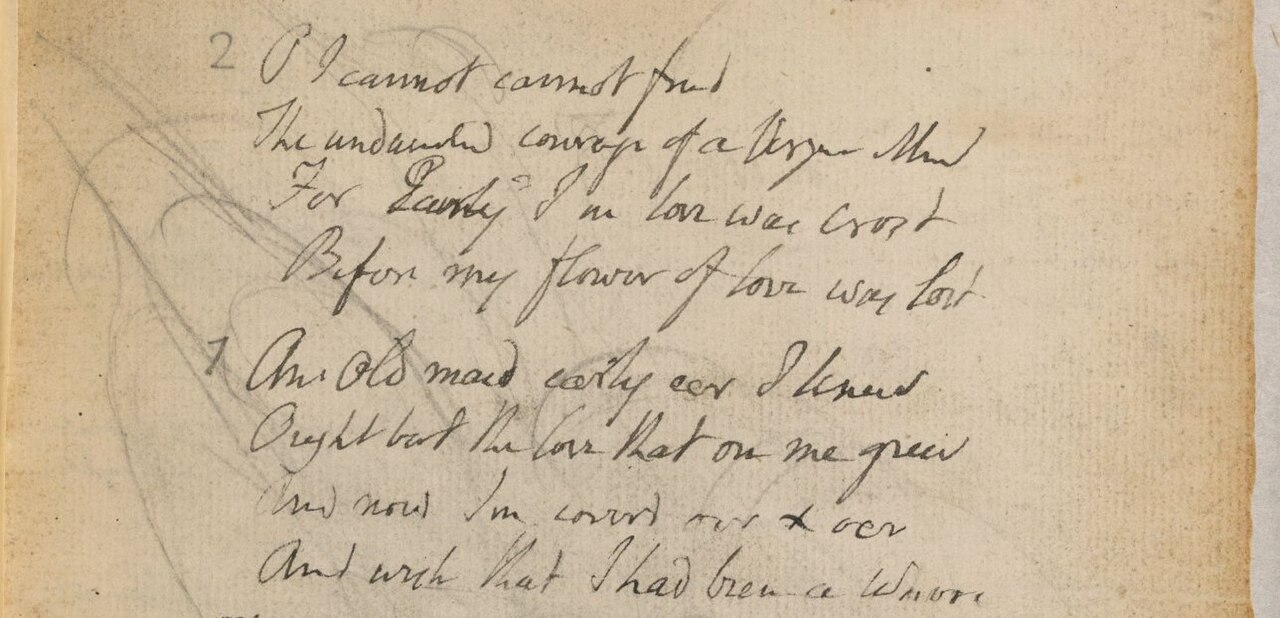 2 O I cannot cannot find
The undaunted courage of a Virgin Mind
For Early I in love was crost
Before my flower of love was lost
1 An Old maid early eer I knew
Ought but the love that on me grew
And now Im coverd oer & oer
And wish that I had been a Whore